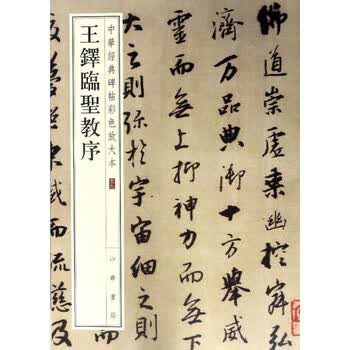 佛道崇虛乘幽控寂弘
濟万品典御十方舉威
靈而無上抑神力而無下
大之則弥於宇宙細之則
中華經典碑帖彩色放大本
王鐸臨聖教序
中華書局
東域而流慈及